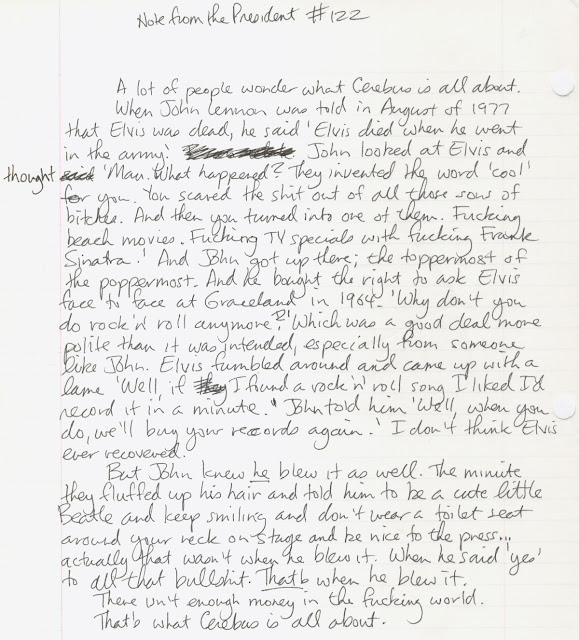 Note from the President #122
A lot of people wonder what Cerebus is all about.
When John Lennon was told in August of 1977
that Elvis was dead, he said 'Elvis died when he went
in the army.' John looked at Elvis and
thought 'Man. What happened? They invented the word 'cool'
for you. You scared the shit out of all those sons of
bitches. And then you turned into one of them. Fucking
beach movies. Fucking TV specials with fucking Frank
Sinatra.' And John got up there; the toppermost of
the poppermost. And he bought the right to ask Elvis
face to face at Graceland in 1964. 'Why don't you
do rock 'n' roll anymore?' Which was a good deal more
polite than it was intended, especially from someone
like John. Elvis fumbled around and came up with a
lame 'Well, if I found a rock 'n' roll song I liked I'd
record it in a minute." John told him 'Well, when you
do, we'll buy your records again.' I don't think Elvis
ever recovered.
But John knew he blew it as well. The minute
they fluffed up his hair and told him to be a cute little
Beatle and keep smiling and don't wear a toilet seat
around your neck on stage and be nice to the press...
actually that wasn't when he blew it. When he said 'yes'
to all that bullshit. That's when he blew it.
There isn't enough money in the fucking world.
That's what Cerebus is all about.